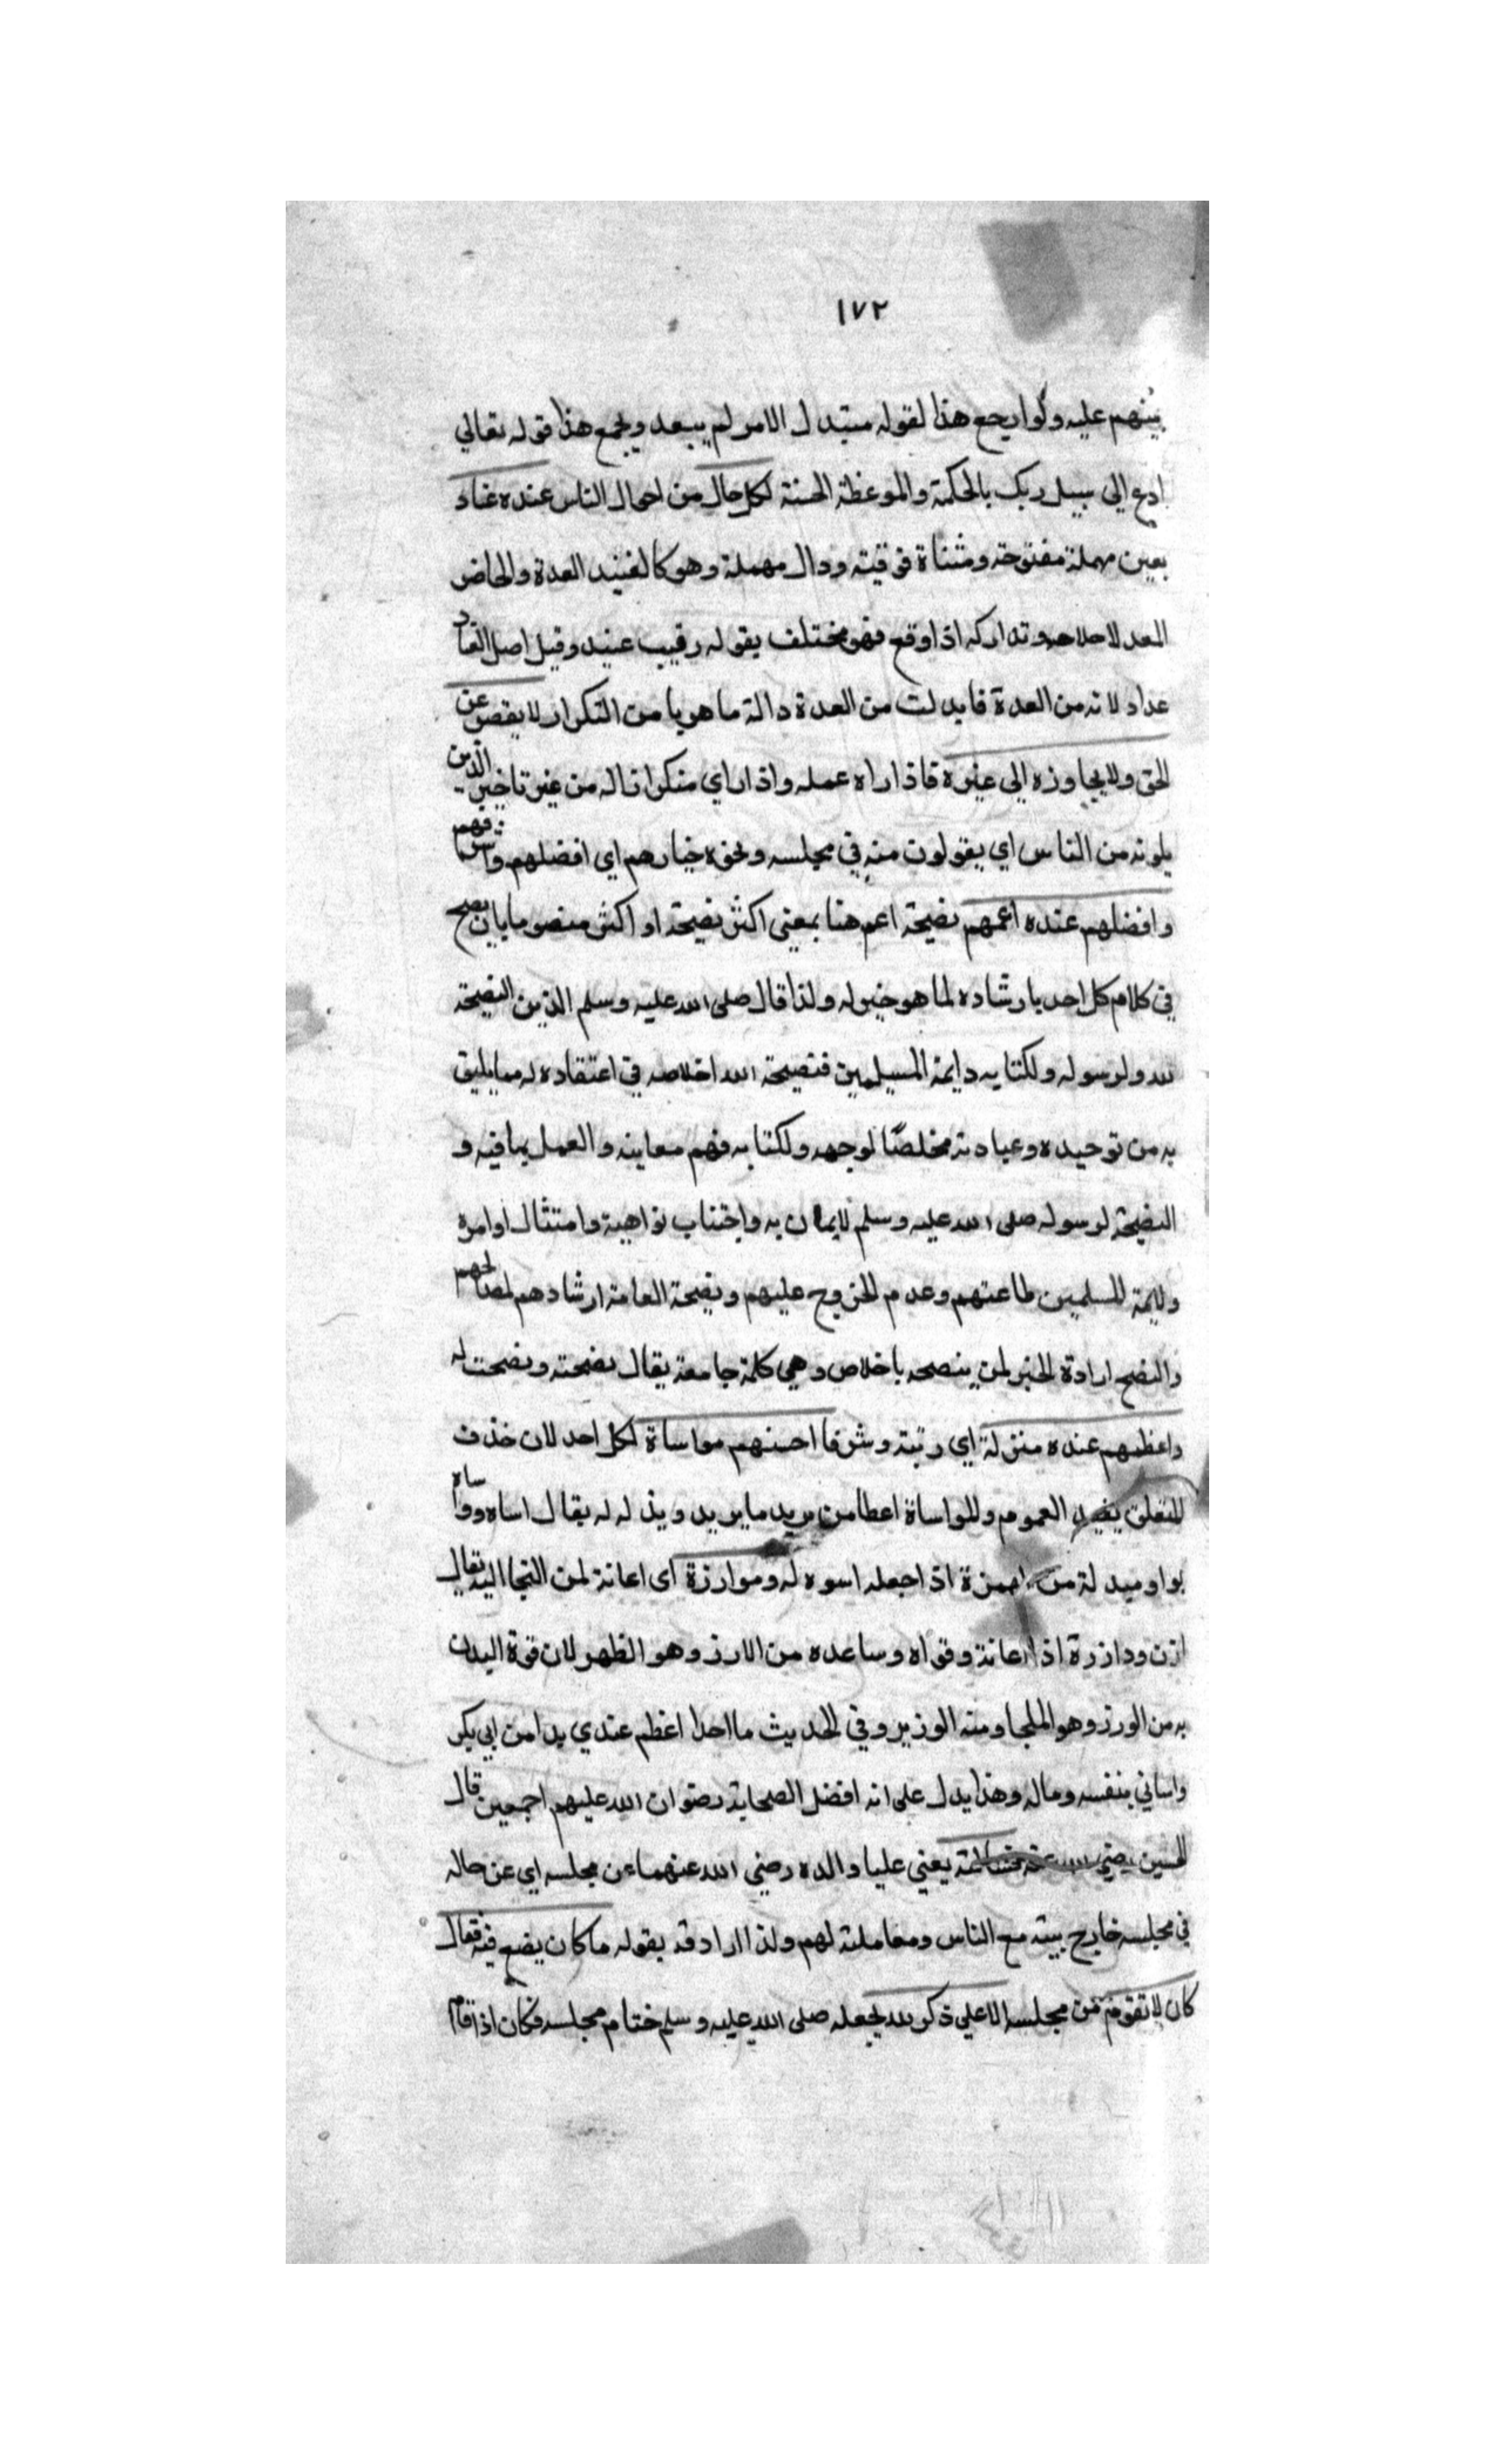 ١٧٢
بينهم عليه ولو ارجع هذا لقوله معتدل الامر لم يبعد ويجمع هذا قوله تعالي
ادع الى سبيل ربك بالحكمة والموعظة الحسنة لكل حال من احوال الناس عنده عتاد
بعين مهملة مفتوحة ومثناة فوقية ودال مهملة وهو كالعتيد العدة والحاضر
المعد لاصلاحه وتداركه اذا وقع فهو مختلف بقوله رقيب عتيد وقيل اصل العتاد
عداد لانه من العدة فابدلت من العدة دالة ما هو يا من التكرار لا يقصر عن
الحق ولا يجاوزه الى غيره فاذا راه عمله واذا راي منكرا ازاله من غير تاخير الذين
يلونه من الناس اي يقولون منه في مجلسه ونحوه خيارهم اي افضلهم واشرفهم
وافضلهم عنده اعمهم نصيحة اعم هنا بمعنى اكثر نصيحة او اكثر منصوحا بان ينصح
في كلام كل احد بارشاده لما هو خير له ولذا قال صلى الله عليه وسلم الدين النصيحة
لله ولرسوله ولكتابه وايمة المسلمين فنصيحة الله اخلاصه في اعتقاده له مما يليق
به من توحيده وعبادته مخلصًا لوجهه ولكتابه فهم معانيه والعمل بما فيه و
النصيحة لرسوله صلى الله عليه وسلم لايمان به واجتناب نواهية وامتثال اوامره
ولايمة المسلمين طاعتهم وعدم الخروج عليهم ونصيحة العامة ارشادهم لمصالحهم
والنصح ارادة الخير لمن ينصحه باخلاص وهي كلمة جامعة يقال نصحته ونصحت له
واعظمهم عنده منزلة اي رتبة وشرفا احسنهم مواساة لكل احد لان حذف
المتعلق يفيد العموم والمواساة اعطا من يريد ما يريد ويذله له يقال اساه وواساه
بواو مبدلة من همزة اذا جعله اسوه له وموارزة اى اعانة لمن التجا اليه يقال
ازن ودازرة اذا اعانة وقواه وساعده من الارز وهو الظهر لان قوة البدن
به من الورز وهو الملجا ومنه الوزير وفي الحديث ما احدا اعظم عندي يدا من ابي بكر
واساني بنفسه وماله وهذا يدل على انه افضل الصحابة رضوان الله عليهم اجمعين قال
الحسين رضي الله عنه فسالته يعني عليا والده رضي الله عنهما عن مجلسه اي عن حاله
في مجلسه خارج بيته مع الناس ومعاملته لهم ولذا ارادفه بقوله ما كان يصنع فيه فقال
كان لا تقوم من مجلسه الا على ذكر الله لجعله صلى الله عليه وسلم ختام مجلسه فكان اذا قام